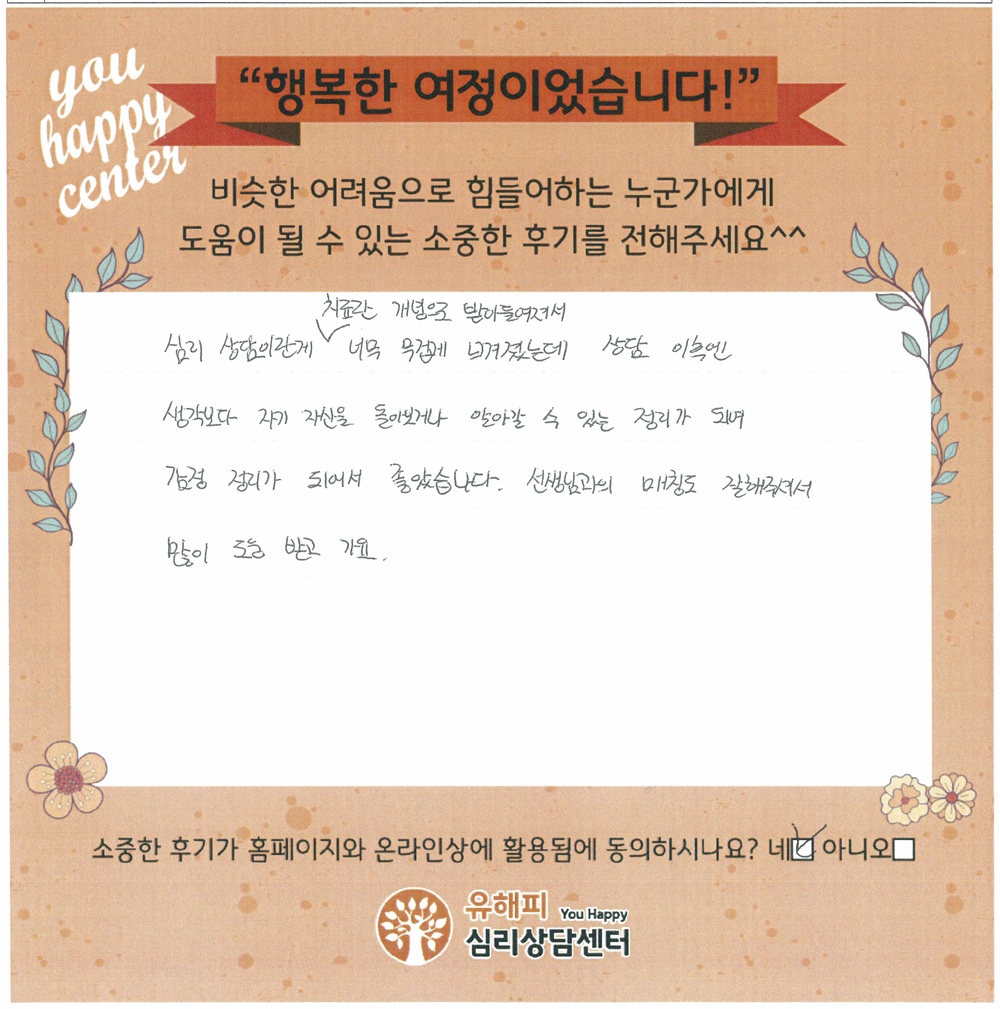 you
happy
center
“행복한 여정이었습니다!”
비슷한 어려움으로 힘들어하는 누군가에게
도움이 될 수 있는 소중한 후기를 전해주세요^^
치료란 개념으로 받아들여져서
심리 상담이란게 너무 무겁게 느껴졌는데 상담 이후엔
생각보다 자기 자신을 돌아보거나 알아갈 수 있는 정리가 되며
감정 정리가 되어서 좋았습니다. 선생님과의 매칭도 잘해주셔서
많이 도움 받고 가요.
소중한 후기가 홈페이지와 온라인상에 활용됨에 동의하시나요? 네☑ 아니오☐
유해피 You Happy
심리상담센터